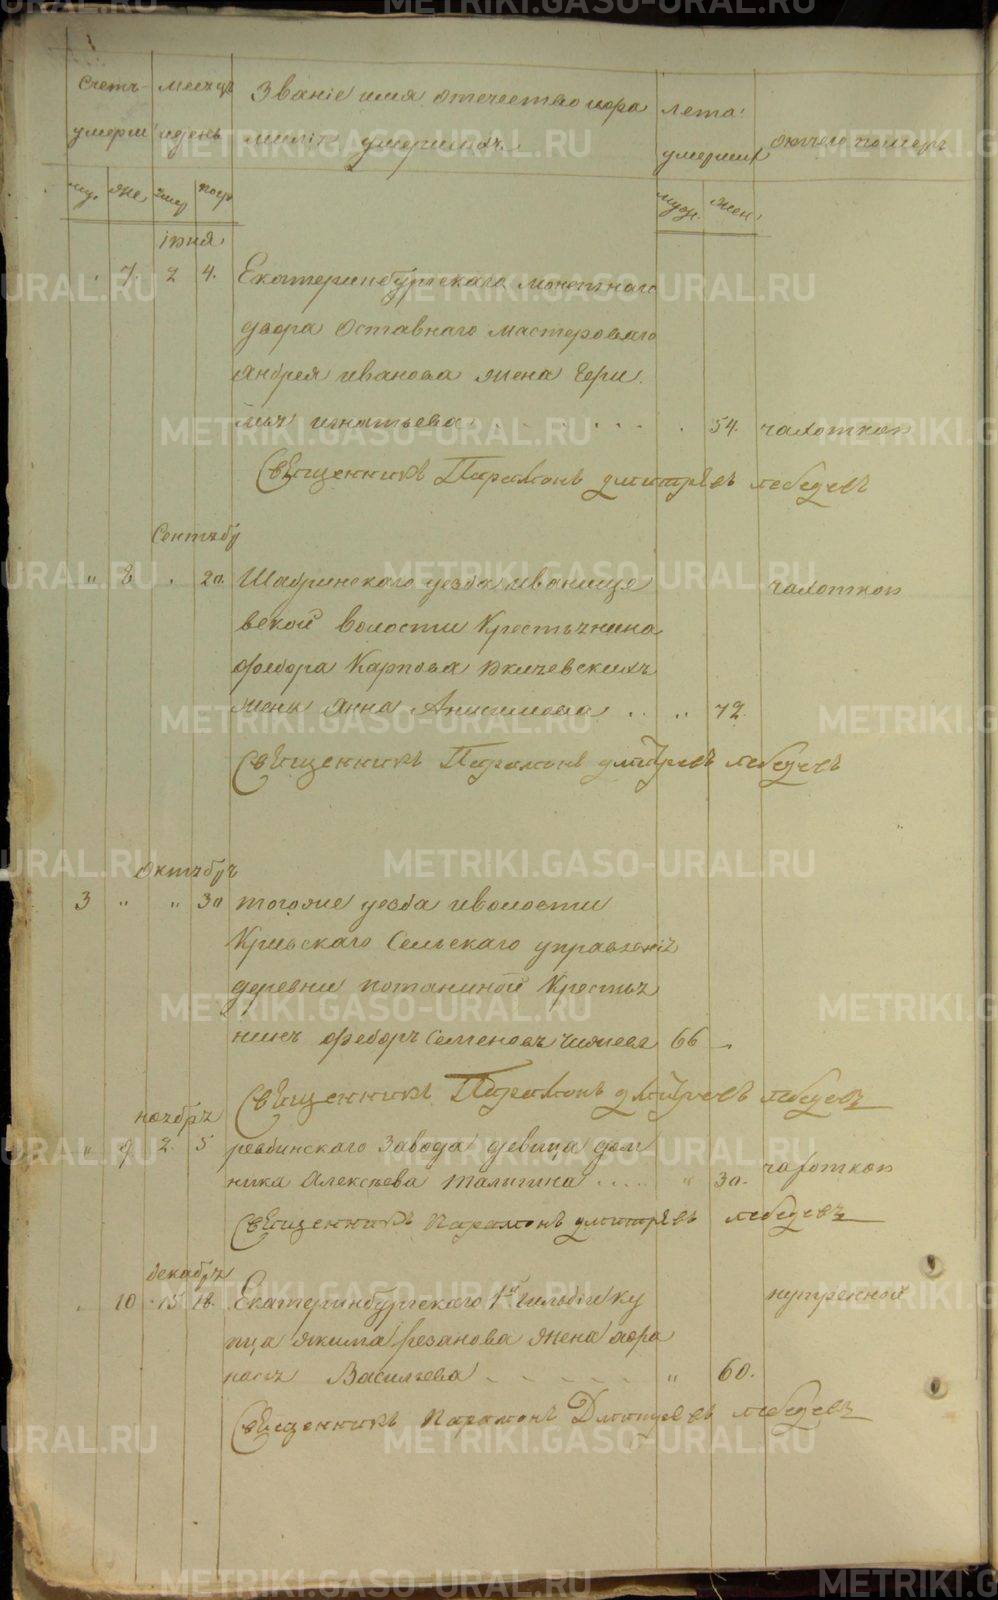 Счетъ месяцъ Званіе имя отечество и фа лета
умерш идень миліѧ умершихъ умерших отчего померъ
му. же, умер погр муж. жен.
іюня
7. 2 4. Екатеринбургскаго монетнаго
двора отставнаго мастероваго
Андрея иванова жена
игнатьева 54. чахоткои
Священникъ Парамонъ дмитріевъ лебедевъ
Сентябр
" 8 . 20. Шадринскаго уезда иванище чахоткои
вской волости Крестьянина
федора Карпова жена Анна Анисимова .. " 72.
Священникъ Парамонъ дмитріевъ лебедевъ
октябр
3 " " 30 тогоже уезда иволости
Кривскаго Сельскаго управленія
деревни потаниной Крестья
нинъ федоръ Семеновъ 66
Священникъ Парамонъ дмитріевъ лебедевъ
ноября
" 9 2. 5 ревдинскаго Завода девица дом
ника Алексѣева талыгина " 30. чахоткои
Священникъ Парамонъ дмитріевъ лебедевъ
декабря
10 15 18. Екатеринбургскаго 1й гильдіи ку нутренной
пца якима резанова жена афра
Васильева " 60.
Священникъ Парамонъ Дмитріевъ лебедевъ
METRIKI.GASO-URAL.RU